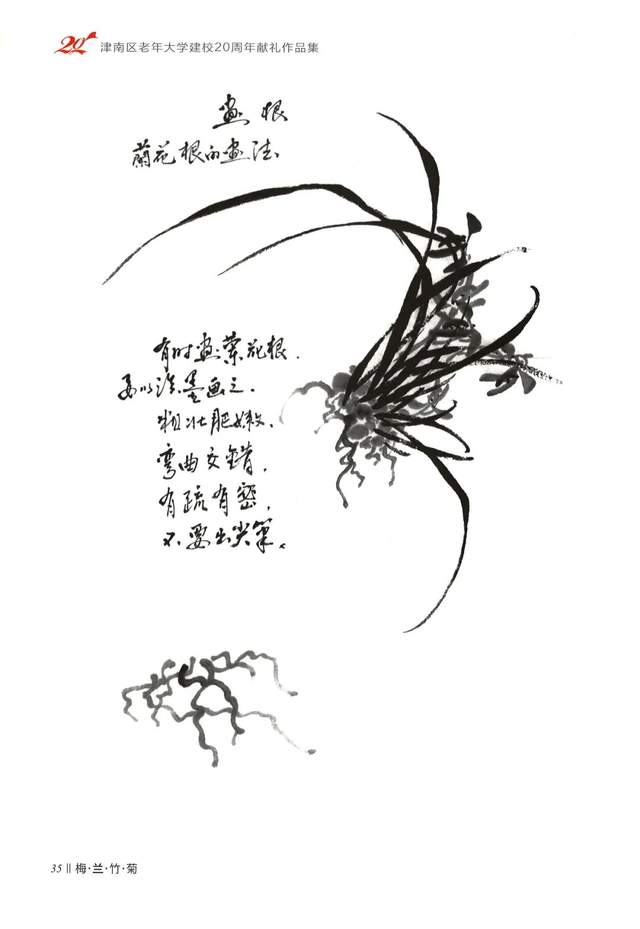 20 津南区老年大学建校20周年献礼作品集
畫根
蘭花根的畫法
有时畫蘭花根.
要以淡墨画之.
粗壮肥嫩、
弯曲交錯,
有疏有密,
不要出尖笔。
35 || 梅·兰·竹·菊